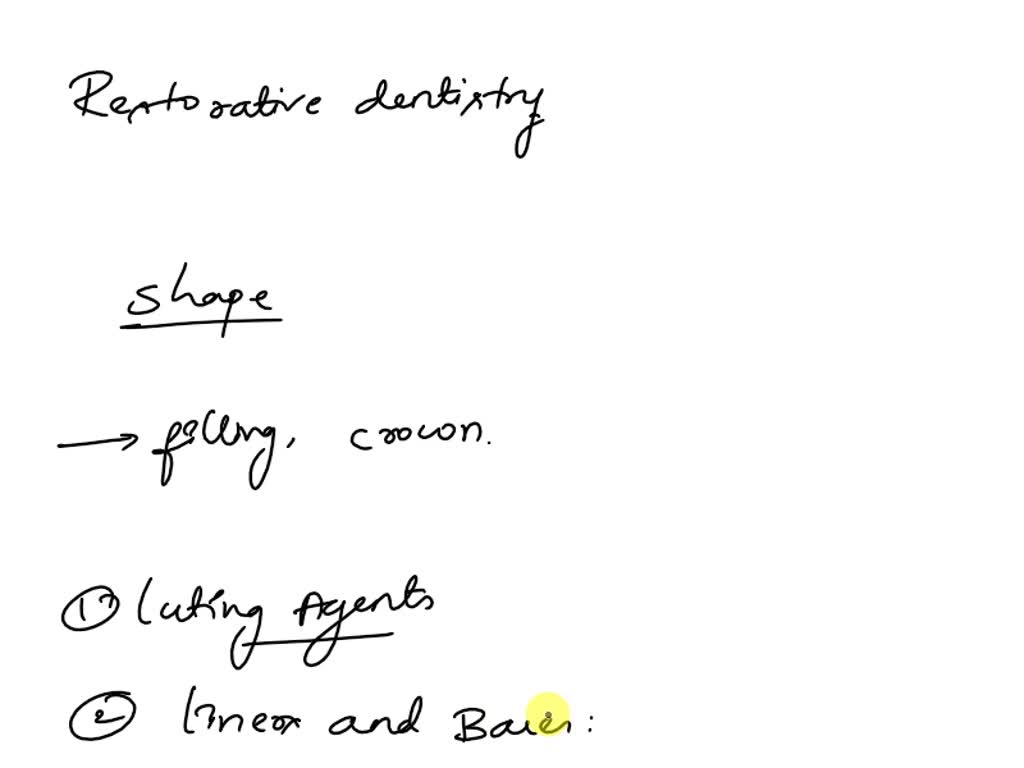 Restorative dentistry
shape
→ filling, crown.
① luting Agents
② liners and Bases: